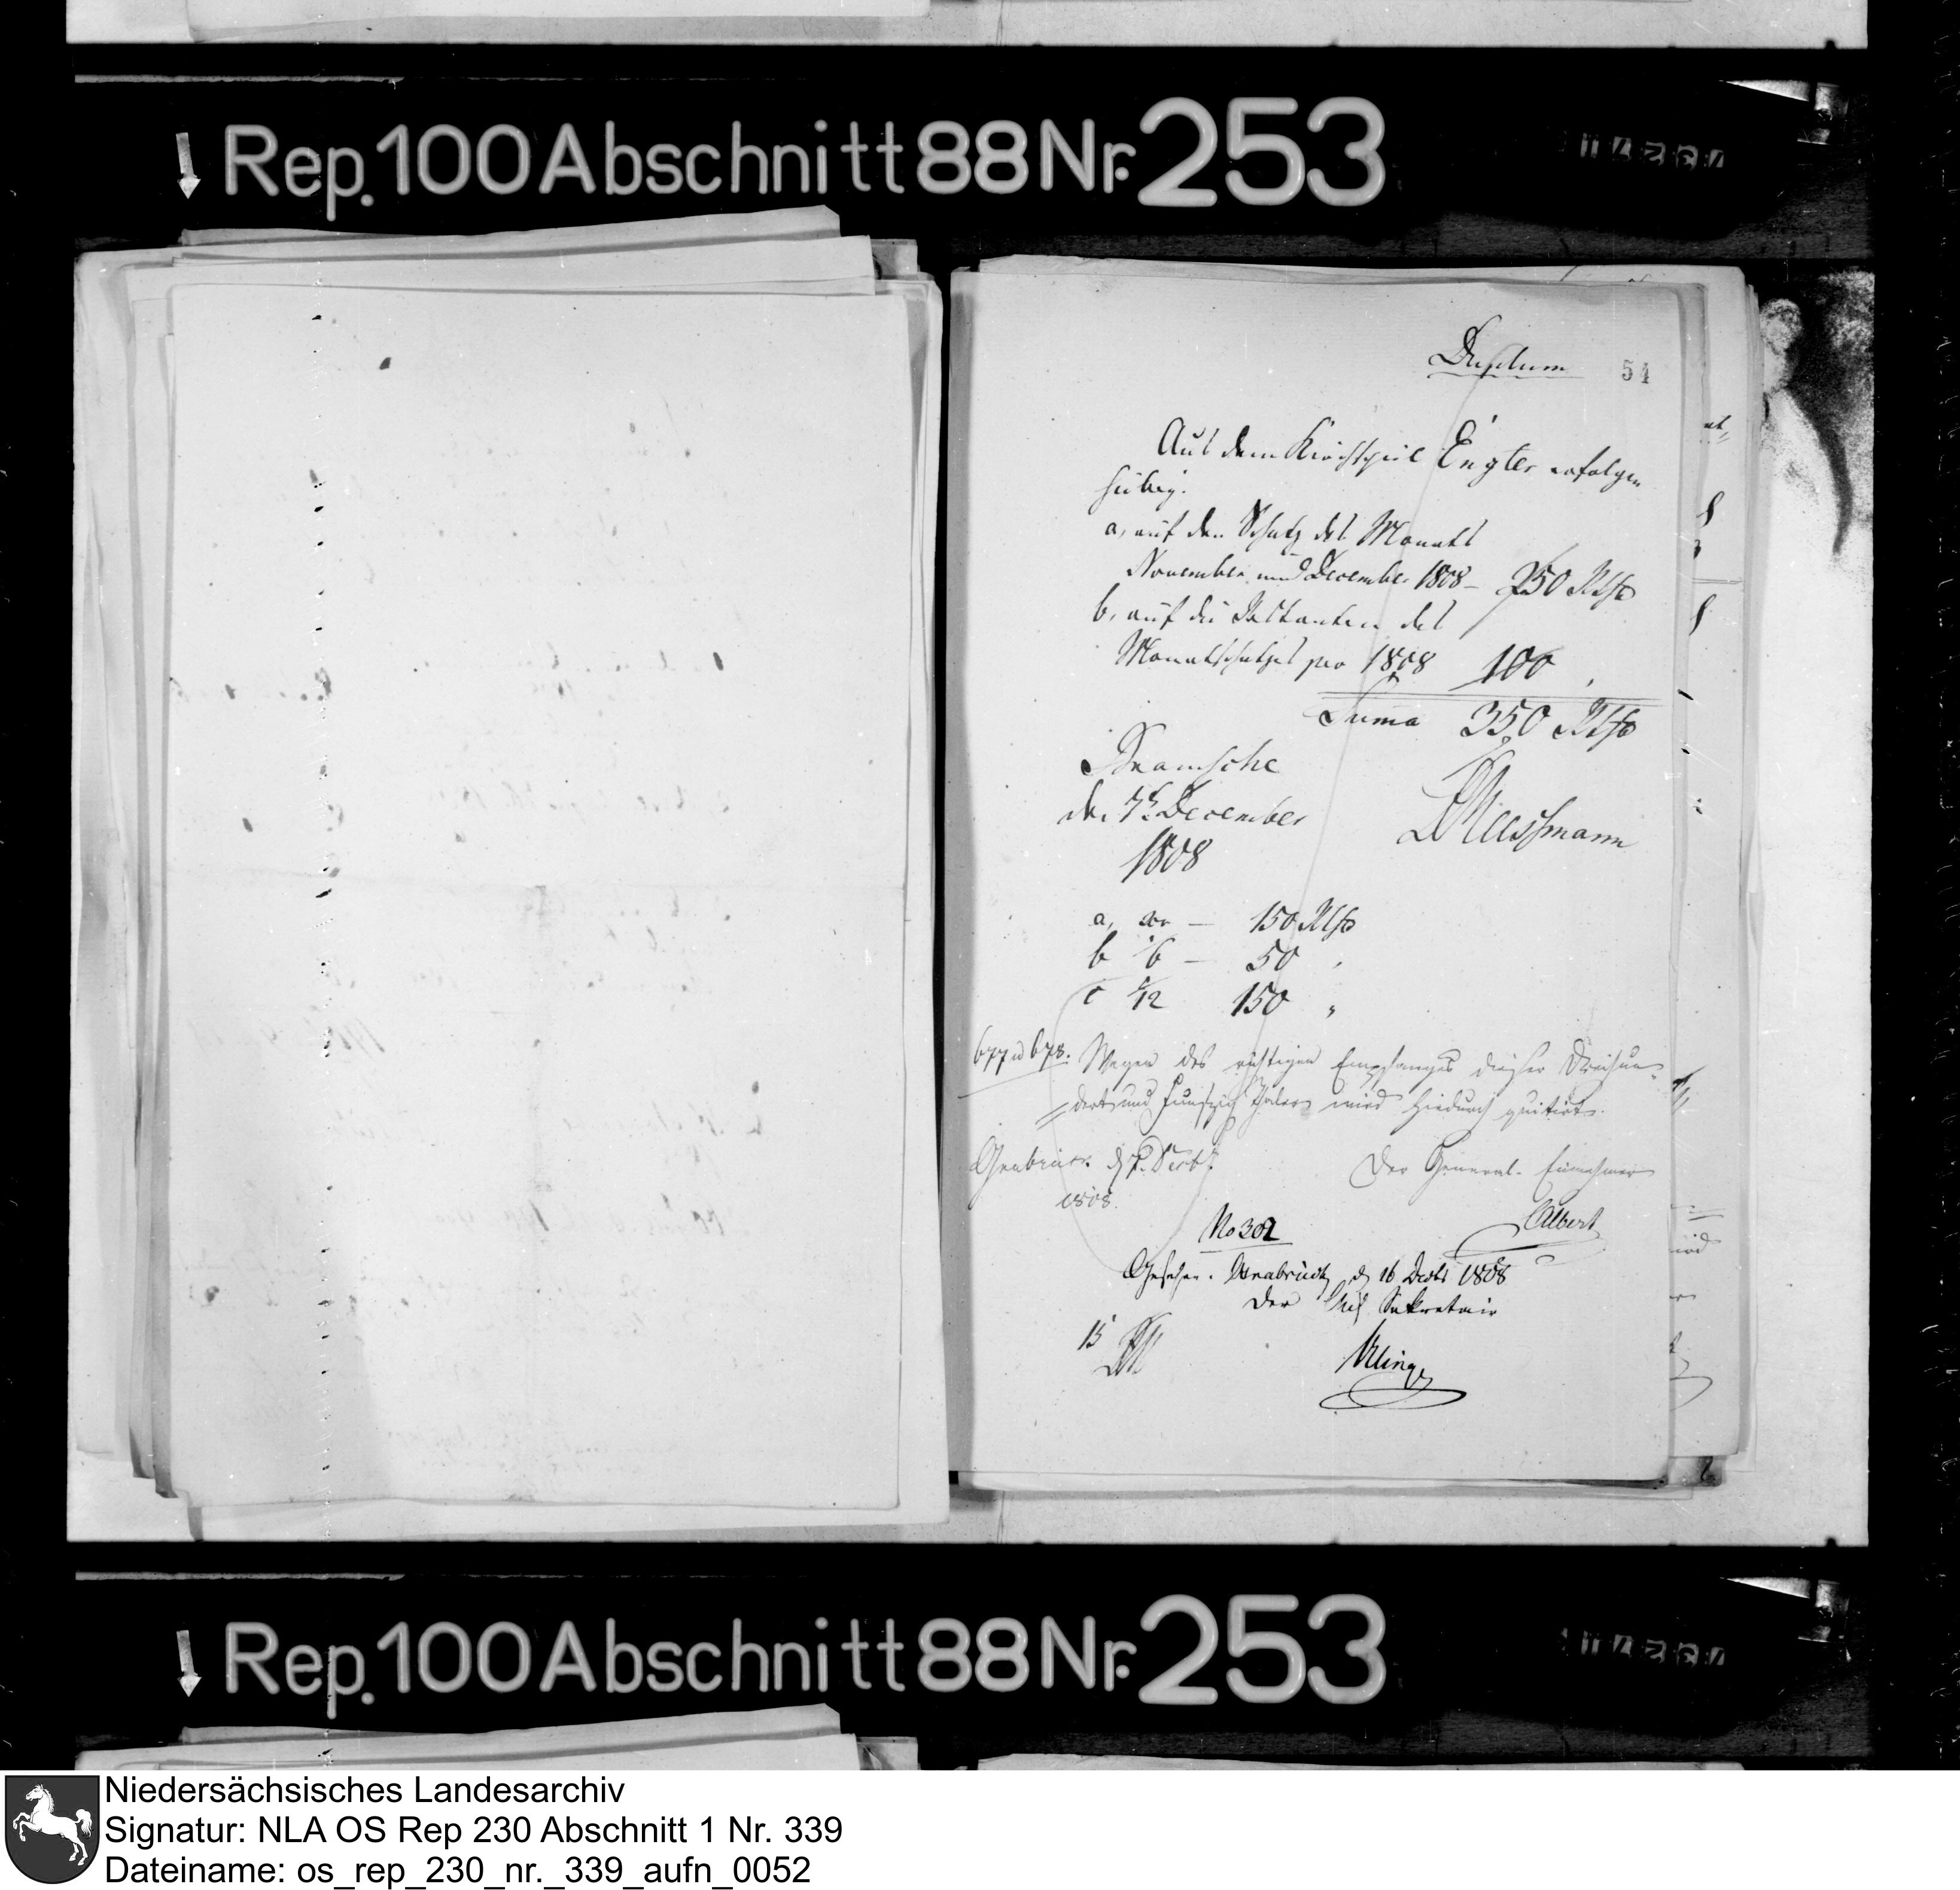 Rep. 100 Abschnitt 88 Nr. 253
Duplum 51
Aus dem Kirchspiel Engter erfolgen
hiebey.
a, auf den Schatz des Monats
November und December 1808 – 250 Rthlr
b, auf die Restanten des
Monatschatzes pro 1808 100 "
Suma 350 Rthlr
Bramsche
den 7t December
1808
Meissmann
a, – 150 Rthlr
b 1/6 – 50 "
c 1/12 150 "
677 u 678. Wegen des richtigen Empfanges dieser Dreihun-
dert und Funfzig Thaler wird hiedurch quitirt.
Osnabrück d 7. Decbr
1808.
Der General-Einnehmer
Albert
No 302
Gesehen. Osnabrück d 16 Decbr 1808
Der Chef Sekretair
15
Kling
Rep. 100 Abschnitt 88 Nr. 253
Niedersächsisches Landesarchiv
Signatur: NLA OS Rep 230 Abschnitt 1 Nr. 339
Dateiname: os_rep_230_nr._339_aufn_0052